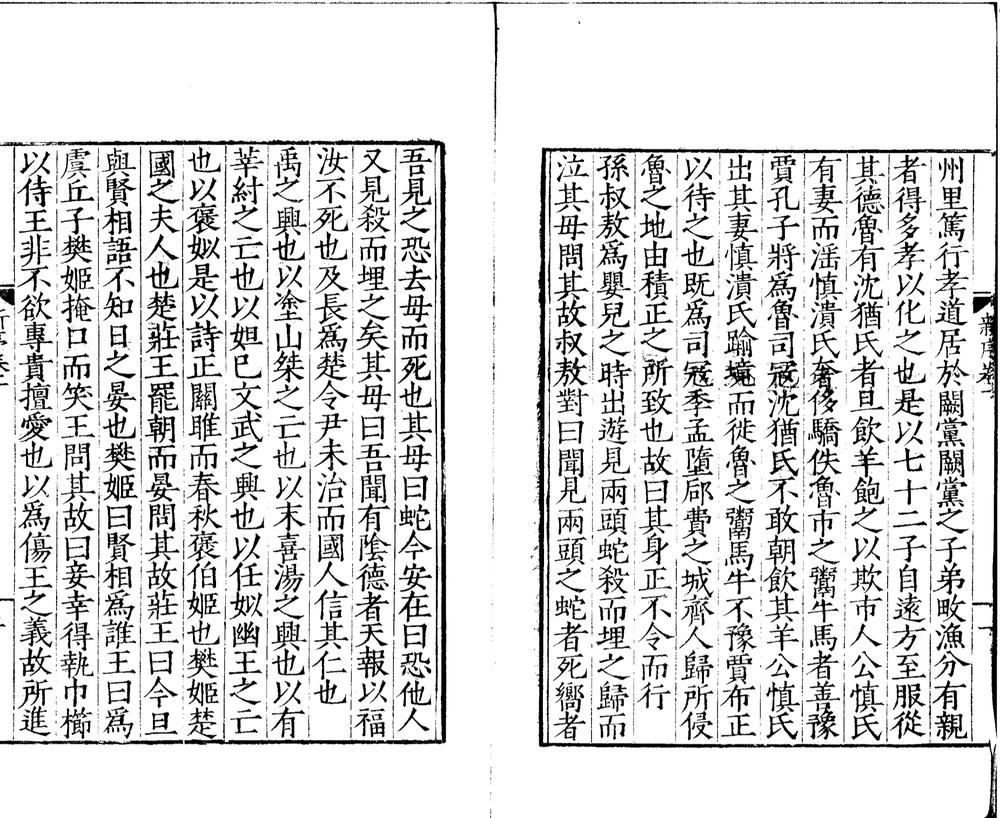 州里篤行孝道居於闕黨闕黨之子弟畋漁分有親
者得多孝以化之也是以七十二子自遠方至服從
其德魯有沈猶氏者旦飲羊飽之以欺市人公慎氏
有妻而滛慎潰氏奢侈驕佚魯市之鬻牛馬者善豫
賈孔子將爲魯司冦沈猶氏不敢朝飲其羊公慎氏
出其妻慎潰氏踰境而徙魯之鬻馬牛不豫賈布正
以待之也既爲司冦季孟墮郈費之城齊人歸所侵
魯之地由積正之所致也故曰其身正不令而行
孫叔敖爲嬰兒之時出遊見兩頭蛇殺而埋之歸而
泣其母問其故叔敖對曰聞見兩頭之蛇者死嚮者
吾見之恐去母而死也其母曰蛇今安在曰恐他人
又見殺而埋之矣其母曰吾聞有陰德者天報以福
汝不死也及長爲楚令尹未治而國人信其仁也
禹之興也以塗山桀之亡也以末喜湯之興也以有
莘紂之亡也以妲己文武之興也以任姒幽王之亡
也以褒姒是以詩正關雎而春秋褒伯姬也樊姬楚
國之夫人也楚莊王罷朝而晏問其故莊王曰今旦
與賢相語不知日之晏也樊姬曰賢相爲誰王曰爲
虞丘子樊姬掩口而笑王問其故曰妾幸得執巾櫛
以侍王非不欲專貴擅愛也以爲傷王之義故所進